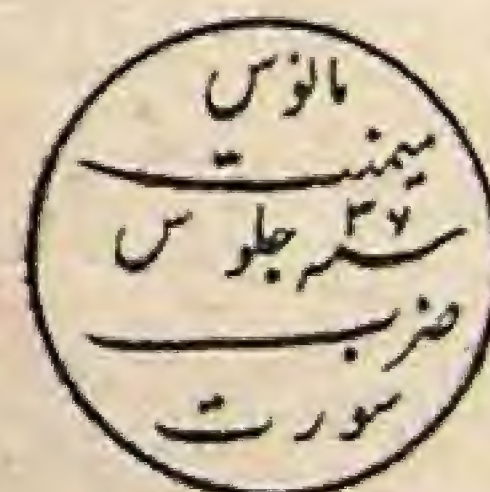 مانوس
میمنت
سنه ۳۶ جلوس
ضرب
سورت